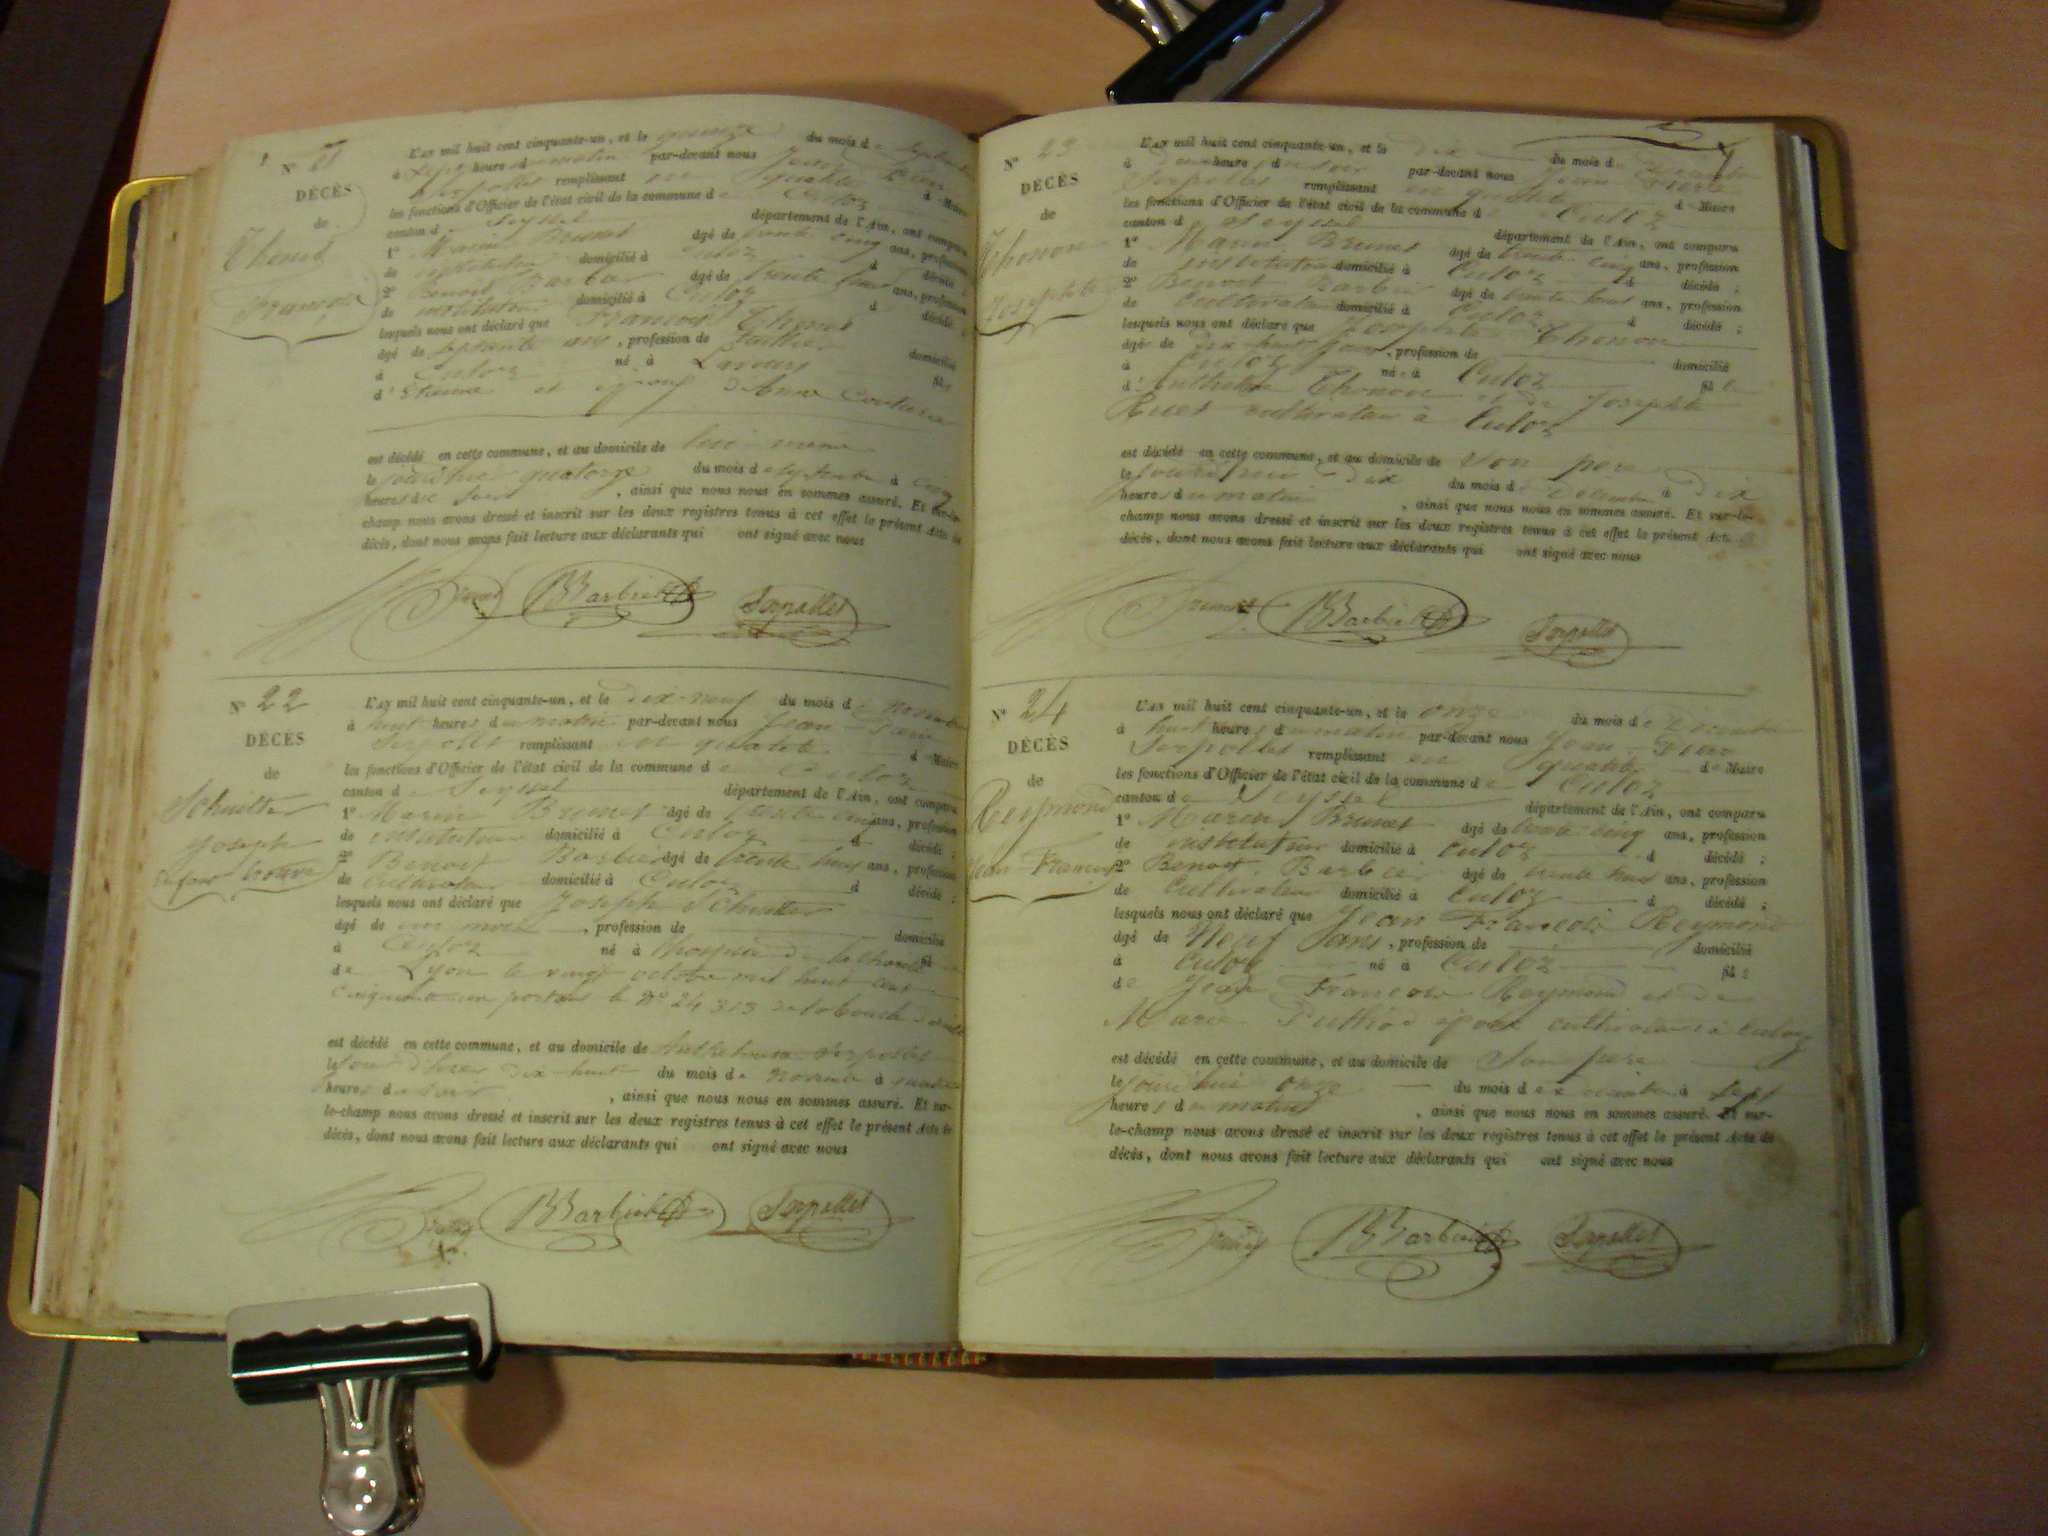 N° 21
DÉCÈS
de
Thenet
François
L'an mil huit cent cinquante-un, et le quinze du mois de Septembre
à sept heures du matin par-devant nous Jean Pierre
Serpollet remplissant en qualité de Maire
les fonctions d'Officier de l'état civil de la commune de Culoz
canton de Seyssel département de l'Ain, ont comparu
1° Marin Brunet âgé de trente cinq ans, profession
de instituteur domicilié à Culoz d décédé ;
2° Benoit Barbier âgé de trente huit ans, profession
de domicilié à Culoz d décédé ;
lesquels nous ont déclaré que François Thenet
âgé de septante ans, profession de domicilié
à Culoz né à Lavours fils
d'Etienne et époux d'Anne
est décédé en cette commune, et au domicile de lui-même
le jourd'hui quatorze du mois de septembre à cinq
heures du soir, ainsi que nous nous en sommes assuré. Et sur-le-
champ nous avons dressé et inscrit sur les deux registres tenus à cet effet le présent Acte de
décès, dont nous avons fait lecture aux déclarants qui ont signé avec nous
Brunet BBarbier Serpollet
N° 22
DÉCÈS
de
Joseph
L'an mil huit cent cinquante-un, et le dix-neuf du mois de Novembre
à huit heures du matin par-devant nous Jean Pierre
Serpollet remplissant en qualité de Maire
les fonctions d'Officier de l'état civil de la commune de Culoz
canton de Seyssel département de l'Ain, ont comparu
1° Marin Brunet âgé de trente cinq ans, profession
de instituteur domicilié à Culoz d décédé ;
2° Benoit Barbier âgé de trente huit ans, profession
de Cultivateur domicilié à Culoz d décédé ;
lesquels nous ont déclaré que Joseph
âgé de un mois, profession de domicilié
à Culoz né à l'hospice de la Charité fils
de Lyon le vingt octobre mil huit cent
cinquante un portant le N° 24313
est décédé en cette commune, et au domicile de Serpollet
le jour d'hier dix-huit du mois de novembre à
heures du soir, ainsi que nous nous en sommes assuré. Et sur-
le-champ nous avons dressé et inscrit sur les deux registres tenus à cet effet le présent Acte de
décès, dont nous avons fait lecture aux déclarants qui ont signé avec nous
Brunet BBarbier Serpollet
N° 23
DÉCÈS
de
Thonon
Josephte
L'an mil huit cent cinquante-un, et le dix du mois de Décembre
à heure du soir par-devant nous Jean Pierre
Serpollet remplissant en qualité de Maire
les fonctions d'Officier de l'état civil de la commune de Culoz
canton de Seyssel département de l'Ain, ont comparu
1° Marin Brunet âgé de trente-cinq ans, profession
de instituteur domicilié à Culoz d décédé ;
2° Benoit Barbier âgé de trente huit ans, profession
de Cultivateur domicilié à Culoz d décédé ;
lesquels nous ont déclaré que Josephte Thonon
âgé de dix huit jours, profession de domicilié
à Culoz né à Culoz fille
d'Anthelme Thonon et de Josephte
cultivateur à Culoz
est décédé en cette commune, et au domicile de son père
le jourd'hui dix du mois de Décembre à dix
heures du matin, ainsi que nous nous en sommes assuré. Et sur-le-
champ nous avons dressé et inscrit sur les deux registres tenus à cet effet le présent Acte
décès, dont nous avons fait lecture aux déclarants qui ont signé avec nous
Brunet BBarbier Serpollet
N° 24
DÉCÈS
de
Reymond
Jean-François
L'an mil huit cent cinquante-un, et le onze du mois de Décembre
à huit heures du matin par-devant nous Jean-Pierre
Serpollet remplissant en qualité de Maire
les fonctions d'Officier de l'état civil de la commune de Culoz
canton de Seyssel département de l'Ain, ont comparu
1° Marin Brunet âgé de trente-cinq ans, profession
de instituteur domicilié à Culoz d décédé ;
2° Benoit Barbier âgé de trente huit ans, profession
de Cultivateur domicilié à Culoz d décédé ;
lesquels nous ont déclaré que Jean François Reymond
âgé de Neuf ans, profession de domicilié
à Culoz né à Culoz fils
de Jean François Reymond et de
Marie époux cultivateurs à Culoz
est décédé en cette commune, et au domicile de Son père
le jourd'hui onze du mois de décembre à sept
heures du matin, ainsi que nous nous en sommes assuré. Et sur-
le-champ nous avons dressé et inscrit sur les deux registres tenus à cet effet le présent Acte de
décès, dont nous avons fait lecture aux déclarants qui ont signé avec nous
Brunet BBarbier Serpollet